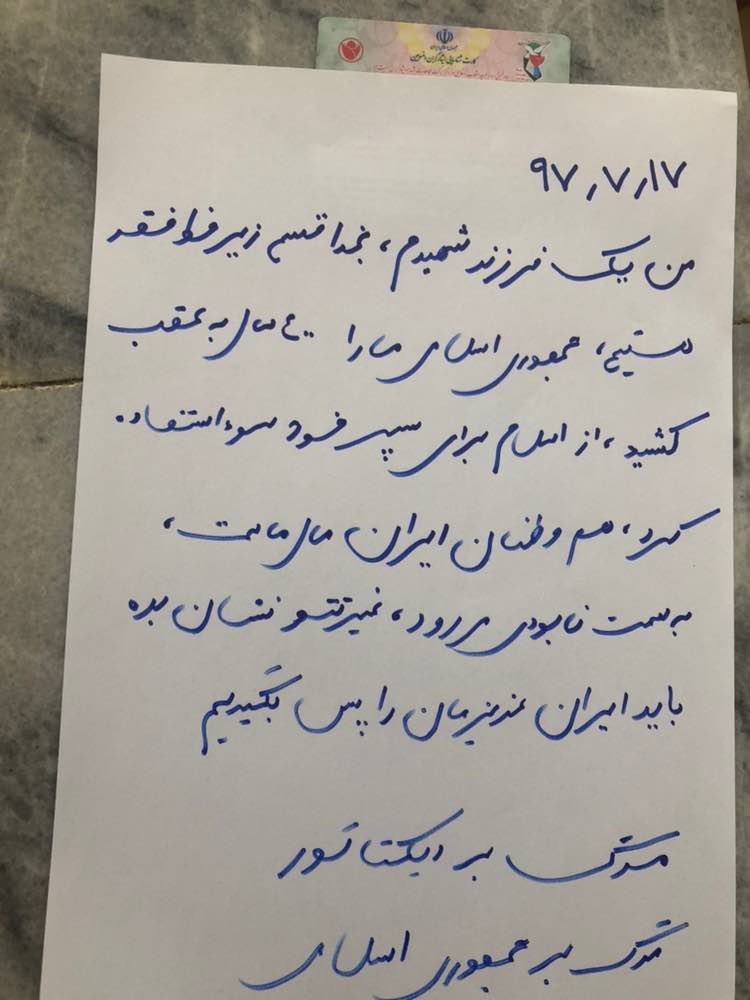 جمهوری اسلامی ایران
کارت شناسایی ایثارگران
۹۷٫۷٫۱۷
من یک فرزند شهیدم، بخدا قسم زیر خط فقر
هستیم، جمهوری اسلامی ما را ۴۰ سال به عقب
کشید، از اسلام برای سپر خود سوء استفاده
کرد، هم وطنان ایران مال ماست،
به سمت نابودی میرود، غیرتتو نشان بده
باید ایران عزیزمان را پس بگیریم
مرگ بر دیکتاتور
مرگ بر جمهوری اسلامی